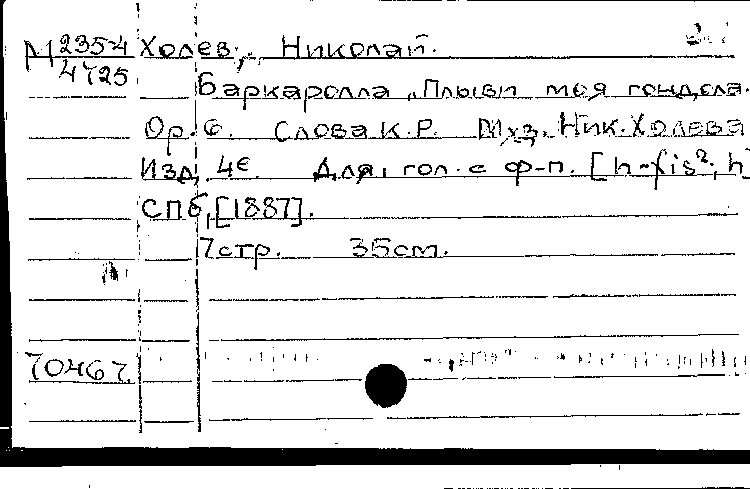 М 235-4 Холев, Николай.
4725
Баркаролла „Плыви моя гондола.
Ор. 6. Слова К.Р. Муз. Ник. Холева
Изд. 4е. Для гол. с ф-п. [h-fis²; h]
СПб, [1887].
7 стр. 35 см.
70467.